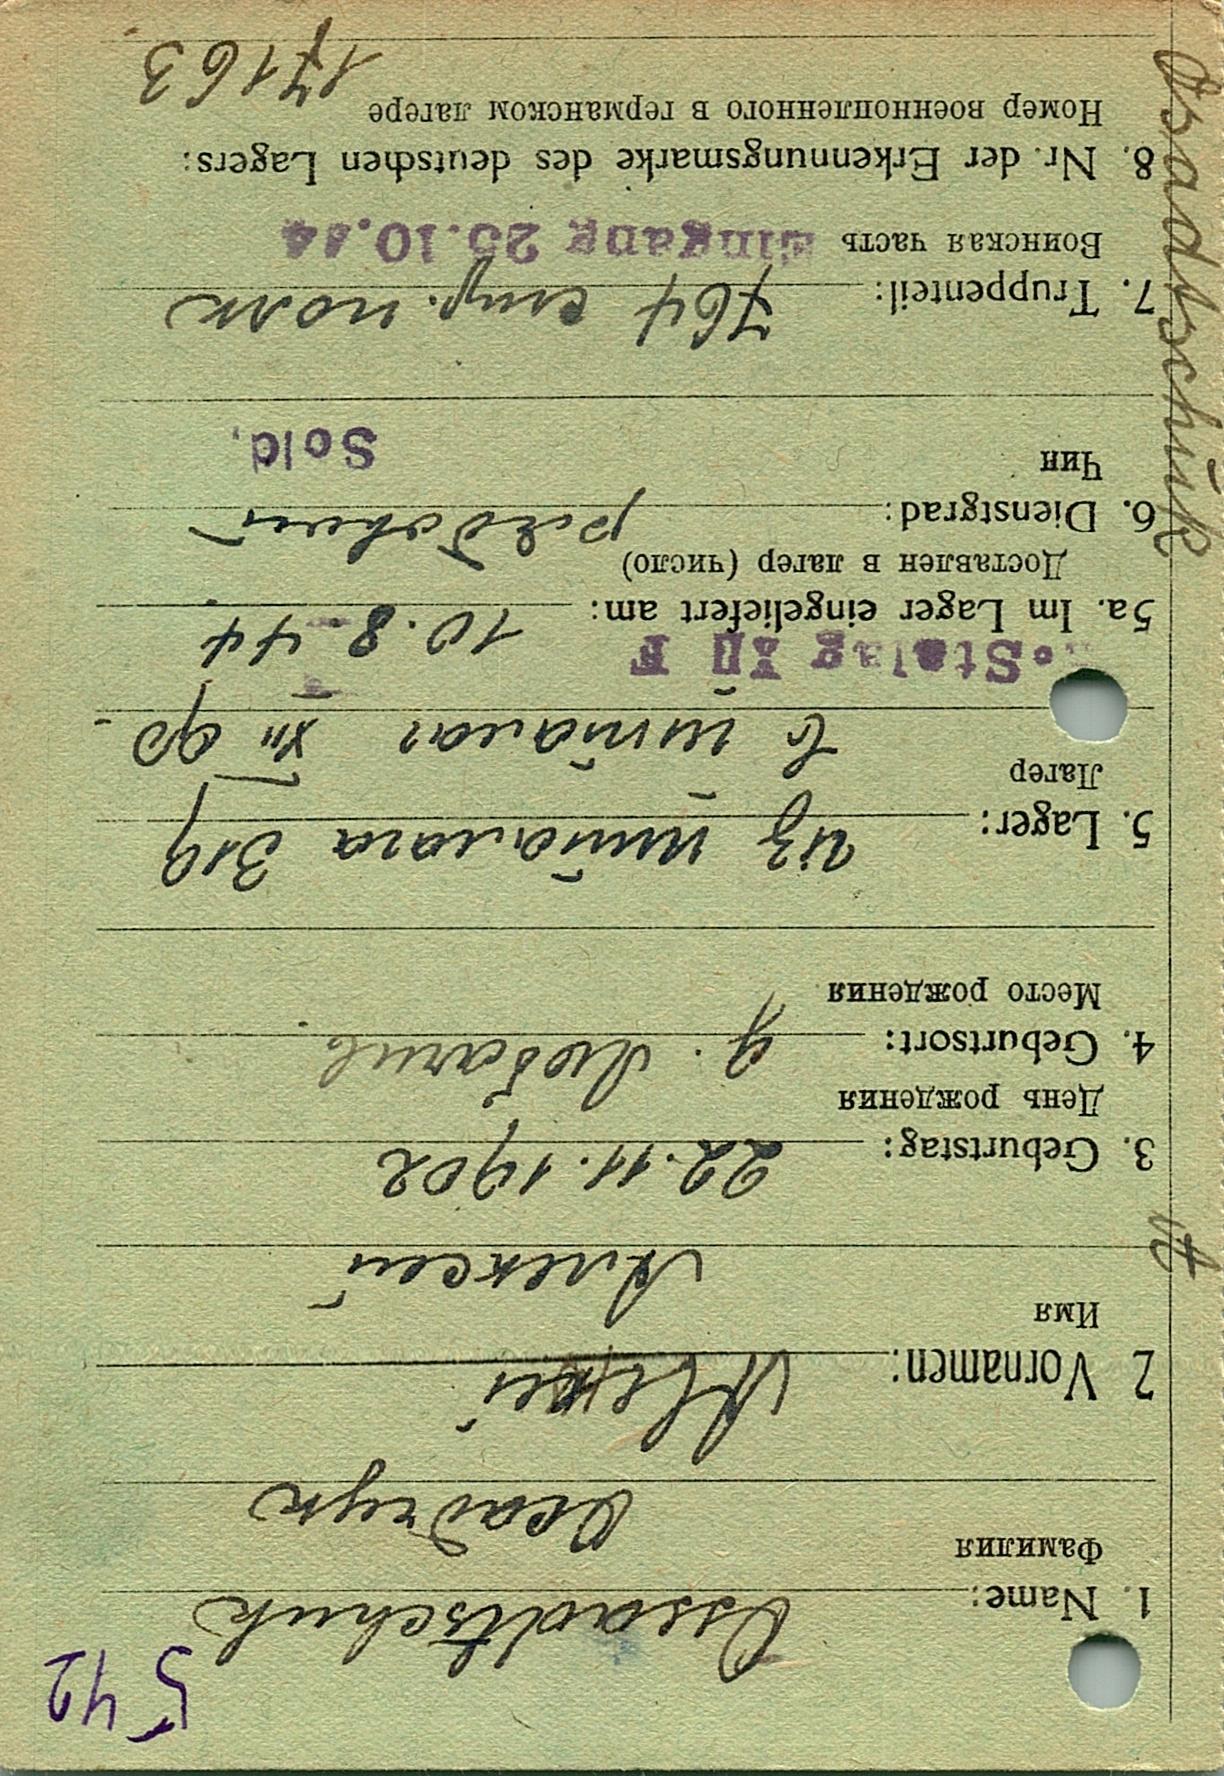 542
1. Name: Ossadtschuk
Фамилия
Осадчук
2 Vornamen: Alexej
Имя
Алексей
3. Geburtstag: 22.11.1902
День рождения
4. Geburtsort: д. Любачив
Место рождения
5. Lager: из шталага 319
Лагер
в шталаг XII ф
Stalag XII F
5a. Im Lager eingeliefert am: 10.8.44
Доставлен в лагер (число)
6. Dienstgrad: рядовой
Чин
Sold.
7. Truppenteil: 764 стр. полк
Воинская часть
Eingang 25.10.44
8. Nr. der Erkennungsmarke des deutschen Lagers:
Номер военнопленного в германском лагере
17163
Osadtschuk